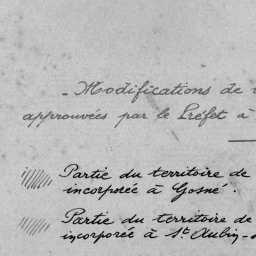 - Modifications de
approuvées par le Préfet à
Partie du territoire de
incorporée à Gosné.
Partie du territoire de
incorporée à St Aubin-